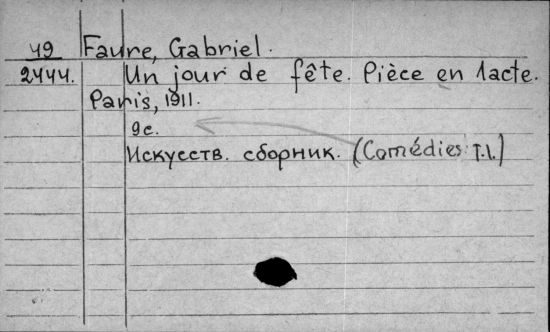 49 Faure, Gabriel.
2444. Un jour de fête. Pièce en 1acte.
Paris, 1911.
9с.
Искусств. сборник. (Comédies T.I.)